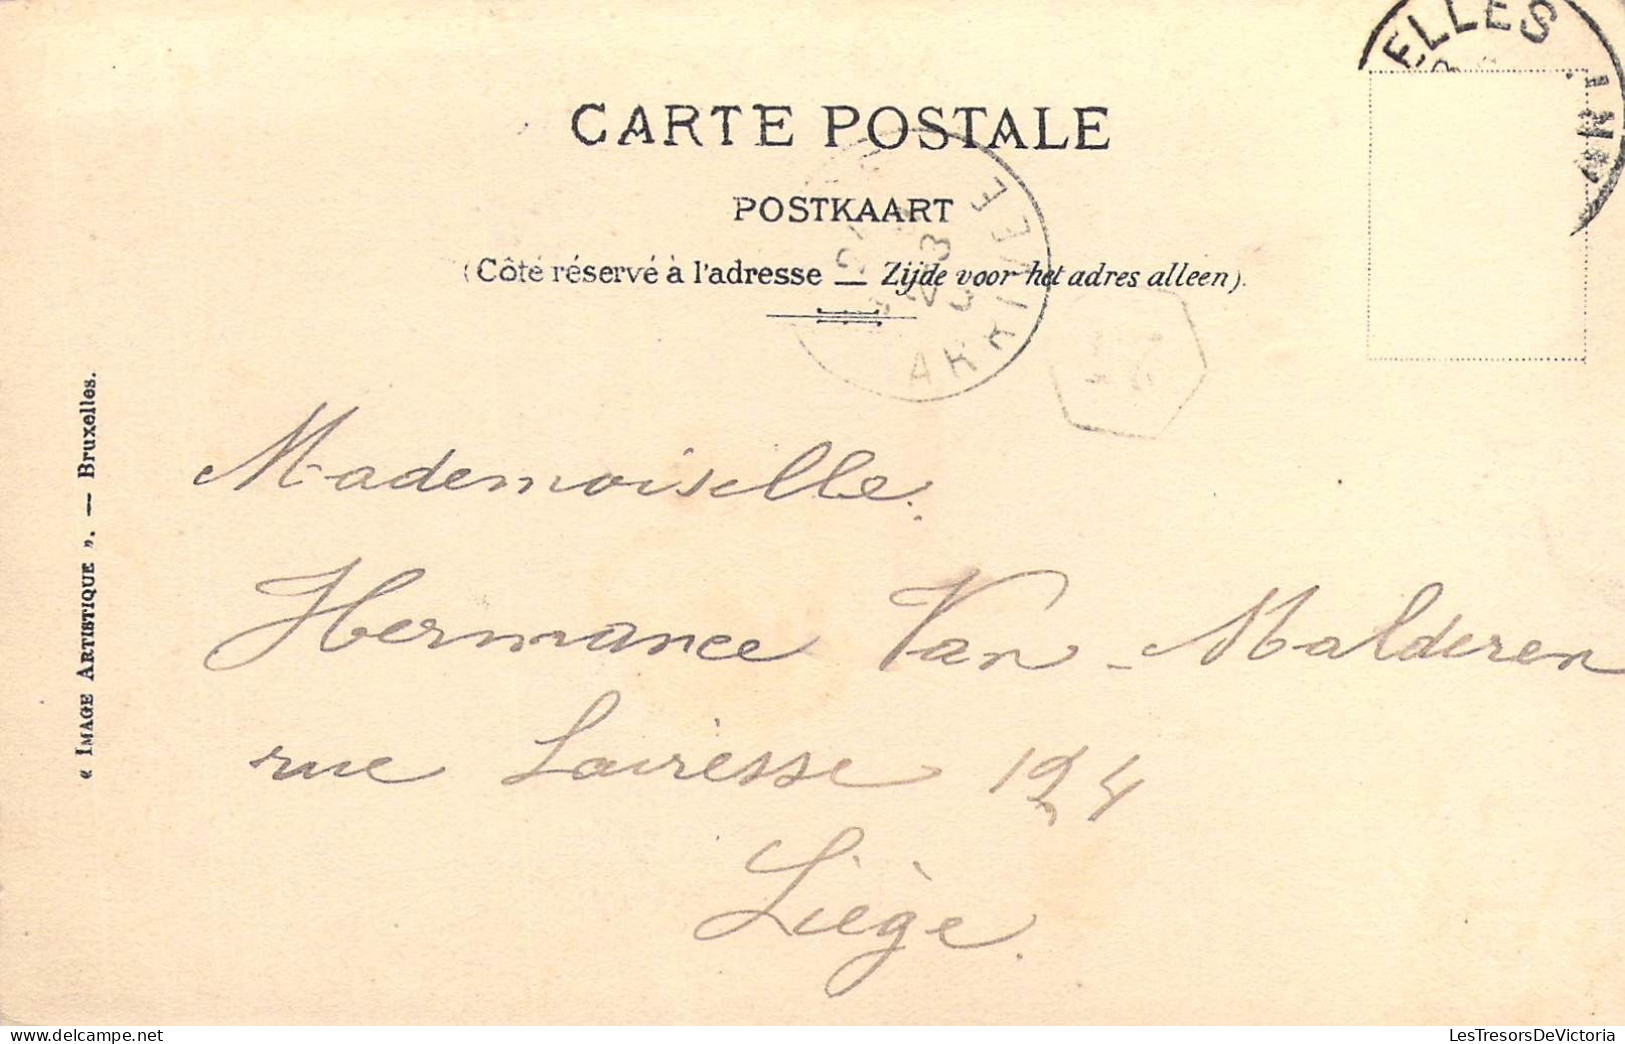 ELLES
CARTE POSTALE
POSTKAART
(Côté réservé à l'adresse — Zijde voor het adres alleen).
ARRIVEE
« IMAGE ARTISTIQUE ». — Bruxelles.
Mademoiselle.
Hermance Van-Malderen
rue Lairesse 124
Liège.
delcampe.net
LesTresorsDeVictoria